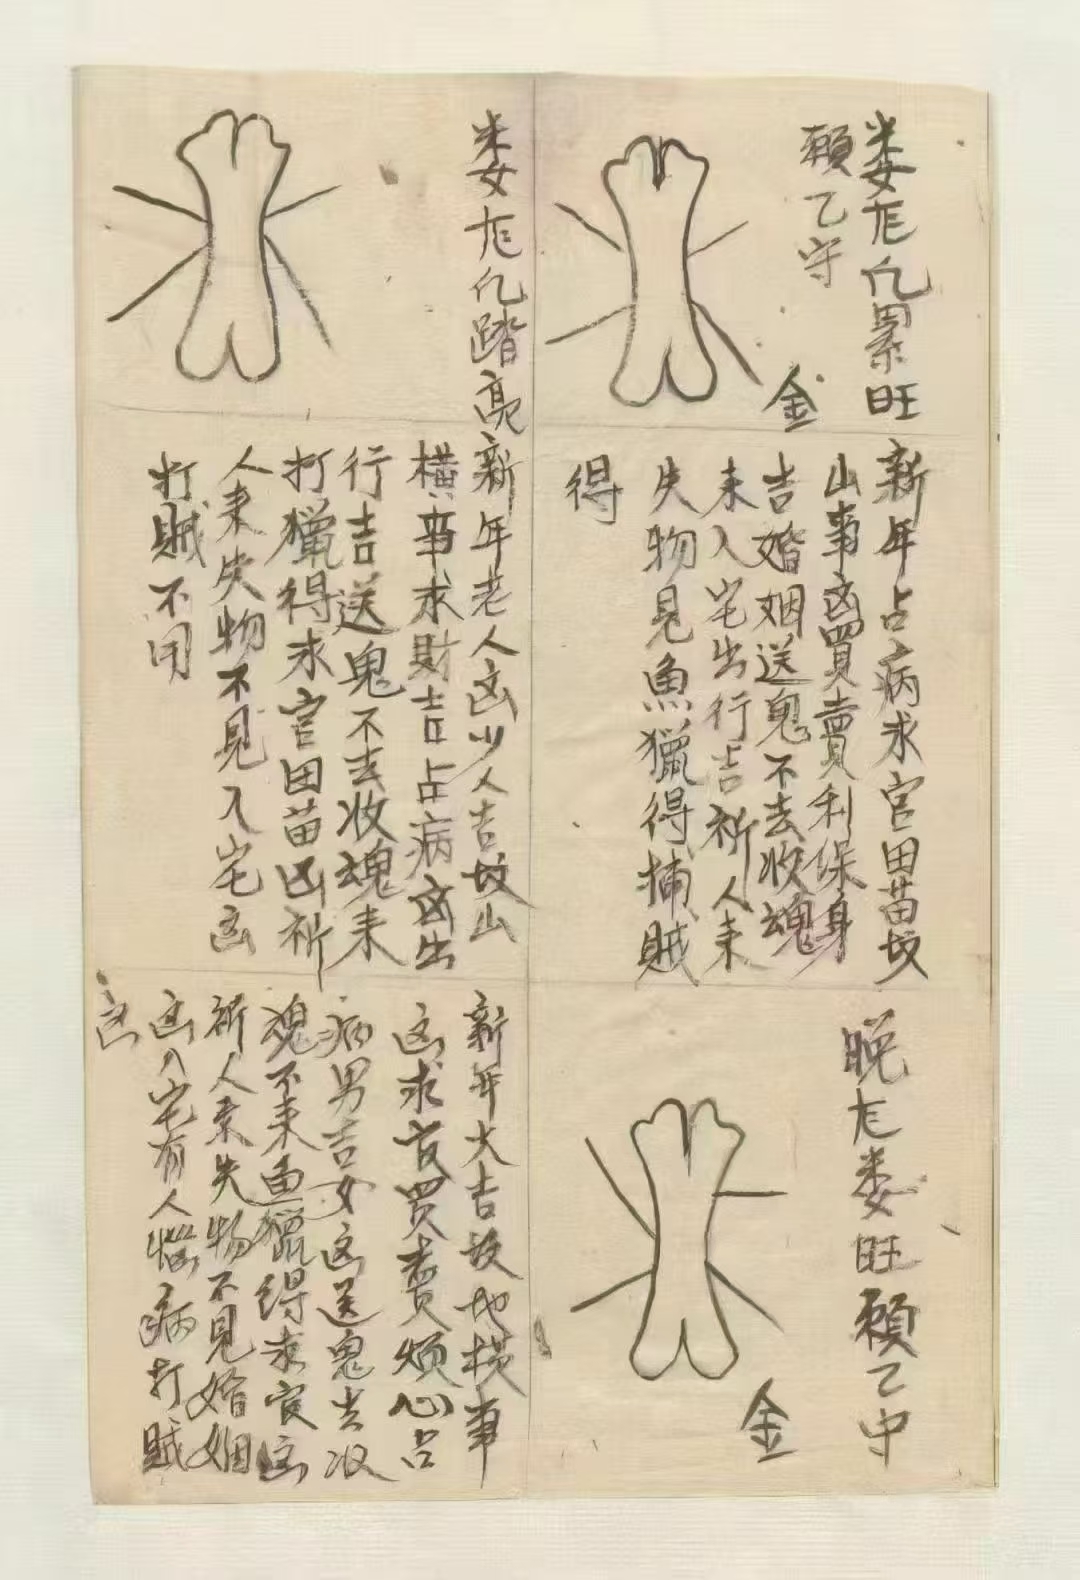 娄㐌㐌累旺
賴乙守
金
新年占病求官田苗坟
山事凶買賣利保身
吉婚姻送鬼不去收魂
未入宅出行吉祈人未
失物見魚獵得捕賊
得
晚㐌娄旺賴乙中
金
娄㐌㐌踏亮
新年老人凶少人吉坟山
横事求財吉占病凶出
行吉送鬼不去收魂未
打獵得求官田苗凶祈
人未失物不見入宅凶
打賊不用
新年大吉坟地横事
凶求官買賣煩心占
病男吉女凶送鬼去収
魂不未魚獵得求官凶
祈人未失物不見婚姻
凶入宅有人惱病打賊
凶